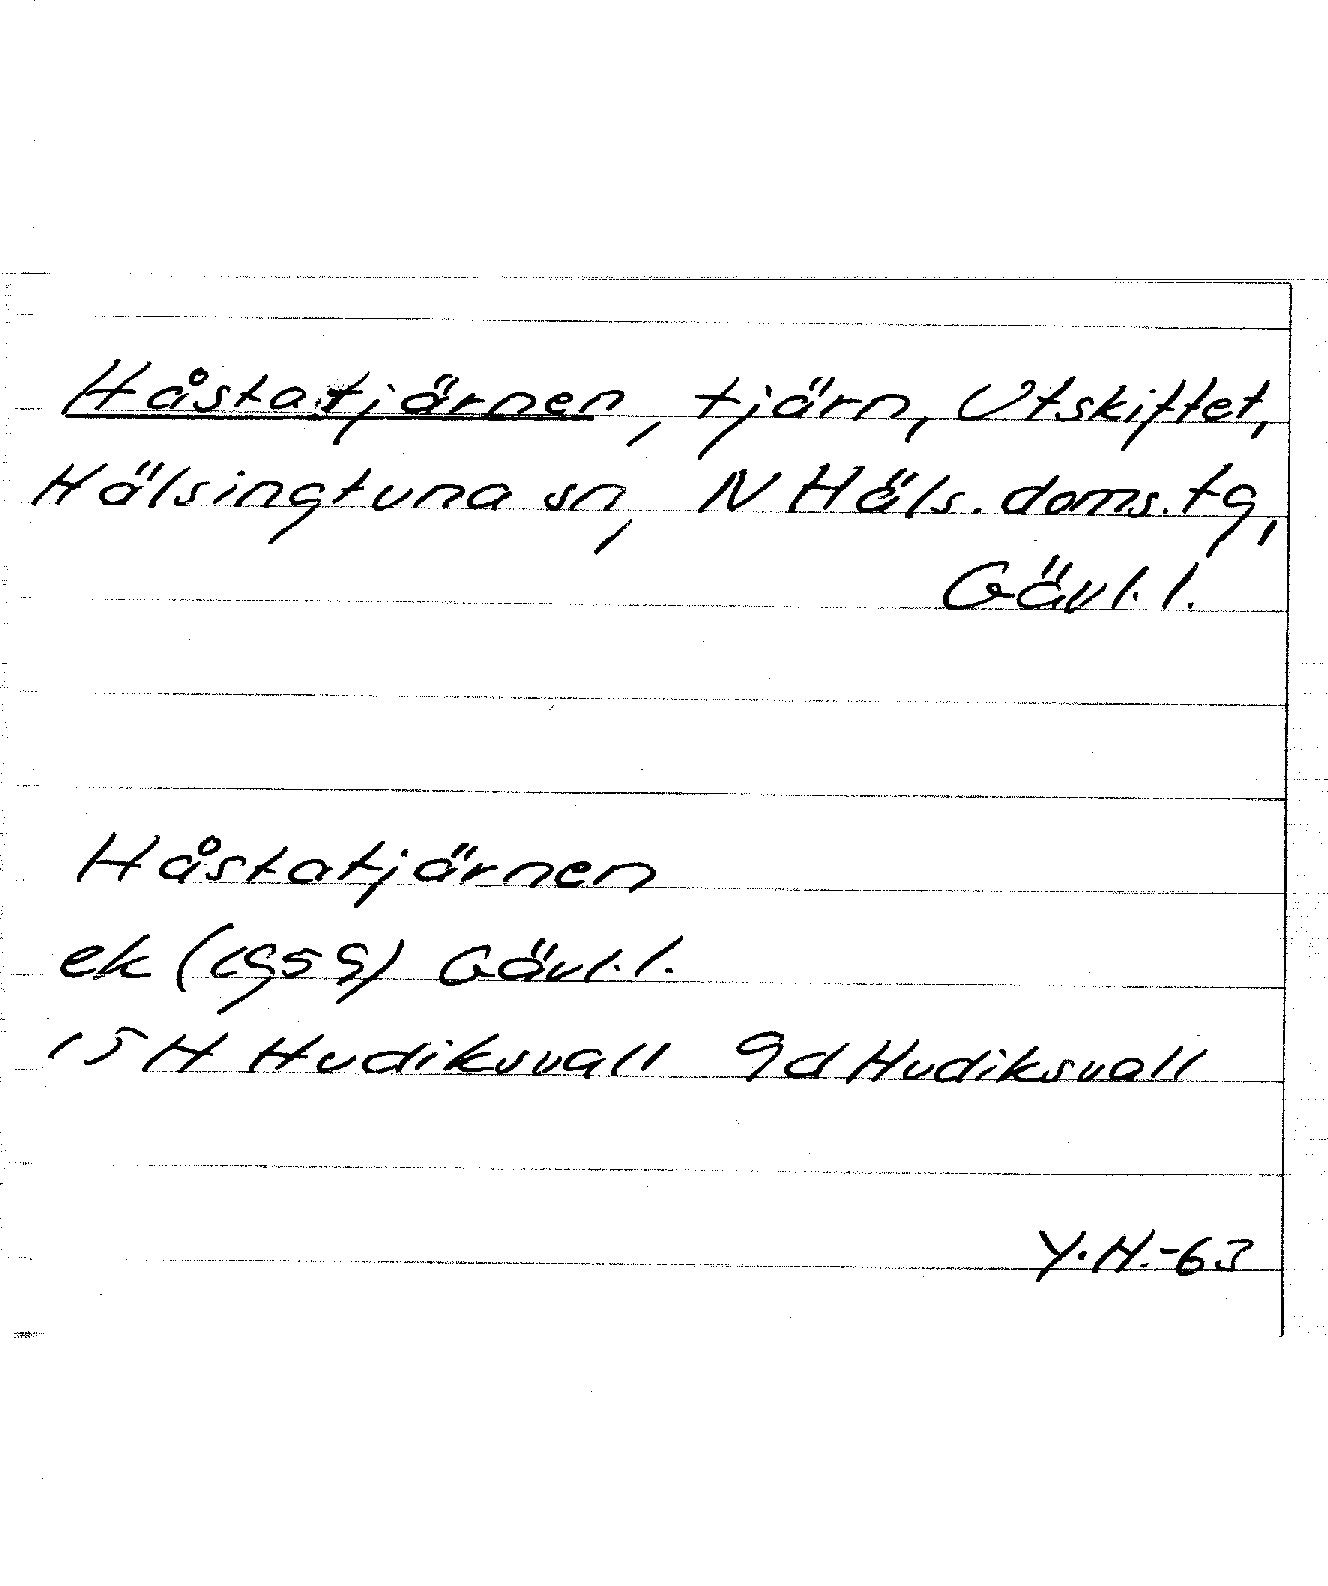 Håstatjärnen, tjärn, Utskiftet,
Hälsingtuna sn, N Häls. doms. tg,
Gävl. l.
Håstatjärnen
ek (1959) Gävl. l.
15 H Hudiksvall 9d Hudiksvall
Y.H.-63